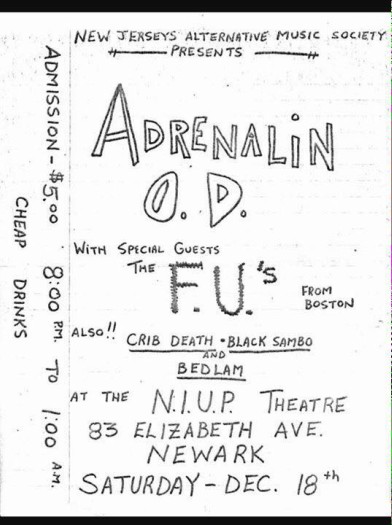 NEW JERSEYS ALTERNATIVE MUSIC SOCIETY
PRESENTS
ADRENALIN
O.D.
WITH SPECIAL GUESTS
THE F.U.'S FROM
BOSTON
ALSO!! CRIB DEATH • BLACK SAMBO
AND
BEDLAM
AT THE N.I.U.P. THEATRE
83 ELIZABETH AVE.
NEWARK
SATURDAY - DEC. 18th
ADMISSION - $5.00 8:00 P.M. TO 1:00 A.M.
CHEAP DRINKS